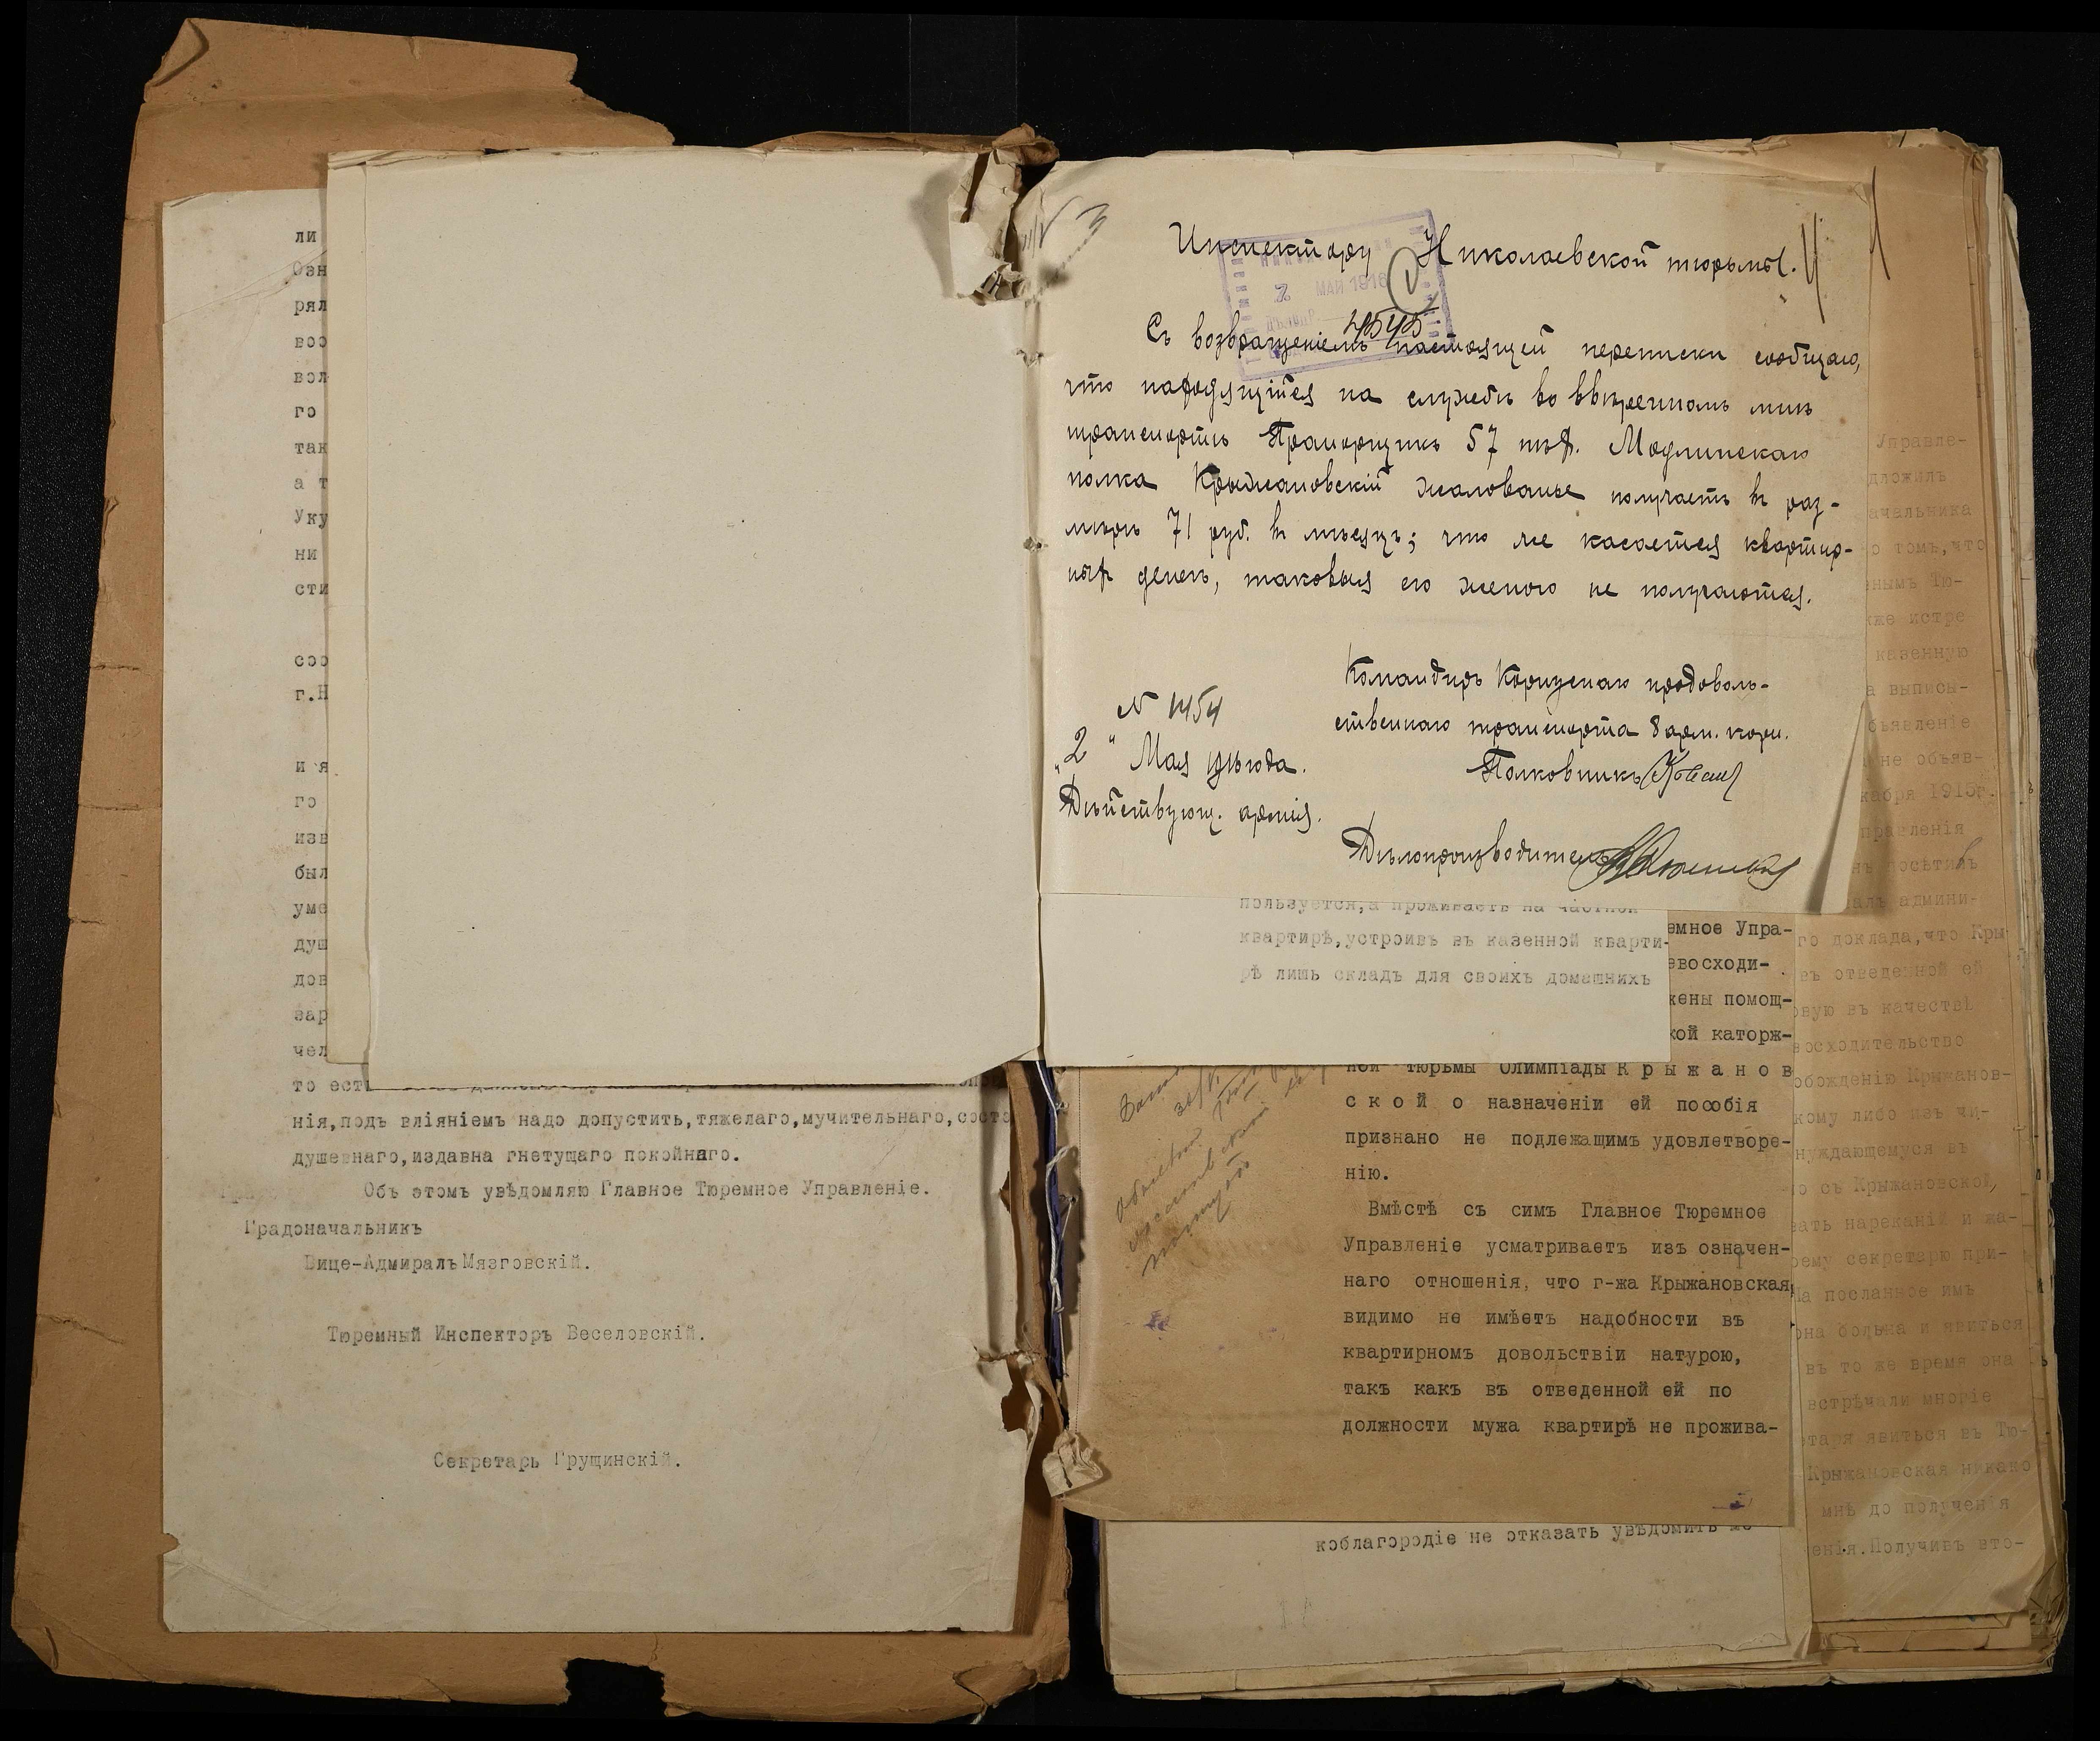 ли
Озн
рял
воо
вол
го
так
а т
Уку
ни
сти
соо
г.Н
и я
го
изв
был
уме
душ
дов
зар
чел
то ест
нія,подъ вліяніемъ надо допустить,тяжелаго,мучительнаго,состо
душевнаго,издавна гнетущаго покойнаго.
Объ этомъ увѣдомляю Главное Тюремное Управленіе.
Градоначальникъ
Вице-Адмиралъ Мязговскій.
Тюремный Инспекторъ Веселовскій.
Секретарь Грущинскій.
Инспектору Николаевской тюрьмы.
МАЙ 1916
Съ возвращеніемъ настоящей переписки сообщаю,
что находящійся на службѣ во ввѣренномъ мнѣ
транспортѣ Прапорщикъ 57 пѣх. Модлинскаго
полка Крыжановскій жалованье получаетъ въ раз-
мѣрѣ 71 руб. въ мѣсяцъ; что же касается квартир-
ныхъ денегъ, таковыя его женою не получаются.
Командиръ Корпуснаго продоволь-
ственнаго транспорта 8 арм. корп.
Полковникъ
№ 1454
"2" Мая 1916 года.
Дѣйствующ. армія.
Дѣлопроизводитель
пользуется,а проживаетъ на частной
квартирѣ,устроивъ въ казенной кварти-
рѣ лишь складъ для своихъ домашнихъ
емное Упра-
евосходи-
жены помощ-
кой каторж-
ной тюрьмы Олимпіады Крыжанов
ской о назначеніи ей пособія
признано не подлежащимъ удовлетворе-
нію.
Вмѣстѣ съ симъ Главное Тюремное
Управленіе усматриваетъ изъ означен-
наго отношенія, что г-жа Крыжановская
видимо не имѣетъ надобности въ
квартирномъ довольствіи натурою,
такъ какъ въ отведенной ей по
должности мужа квартирѣ не прожива-
коблагородіе не отказать увѣдомить
Управле-
дложилъ
ачальника
о томъ,что
енымъ Тю-
кже истре
казенную
а выписы-
бъявленіе
не объяв-
кабря 1915г.
правленія
нъ посѣтилъ
алъ админи-
го доклада,что Кры
въ отведенной ей
овую въ качествѣ
восходительство
обожденію Крыжанов-
кому либо изъ чи-
нуждающемуся въ
о съ Крыжановской,
вать нареканій и жа-
оему секретарю при-
На посланное имъ
она больна и явиться
въ то же время она
встрѣчали многіе
етаря явиться въ Тю-
Крыжановская никако
мнѣ до полученія
енія.Получивъ вто-